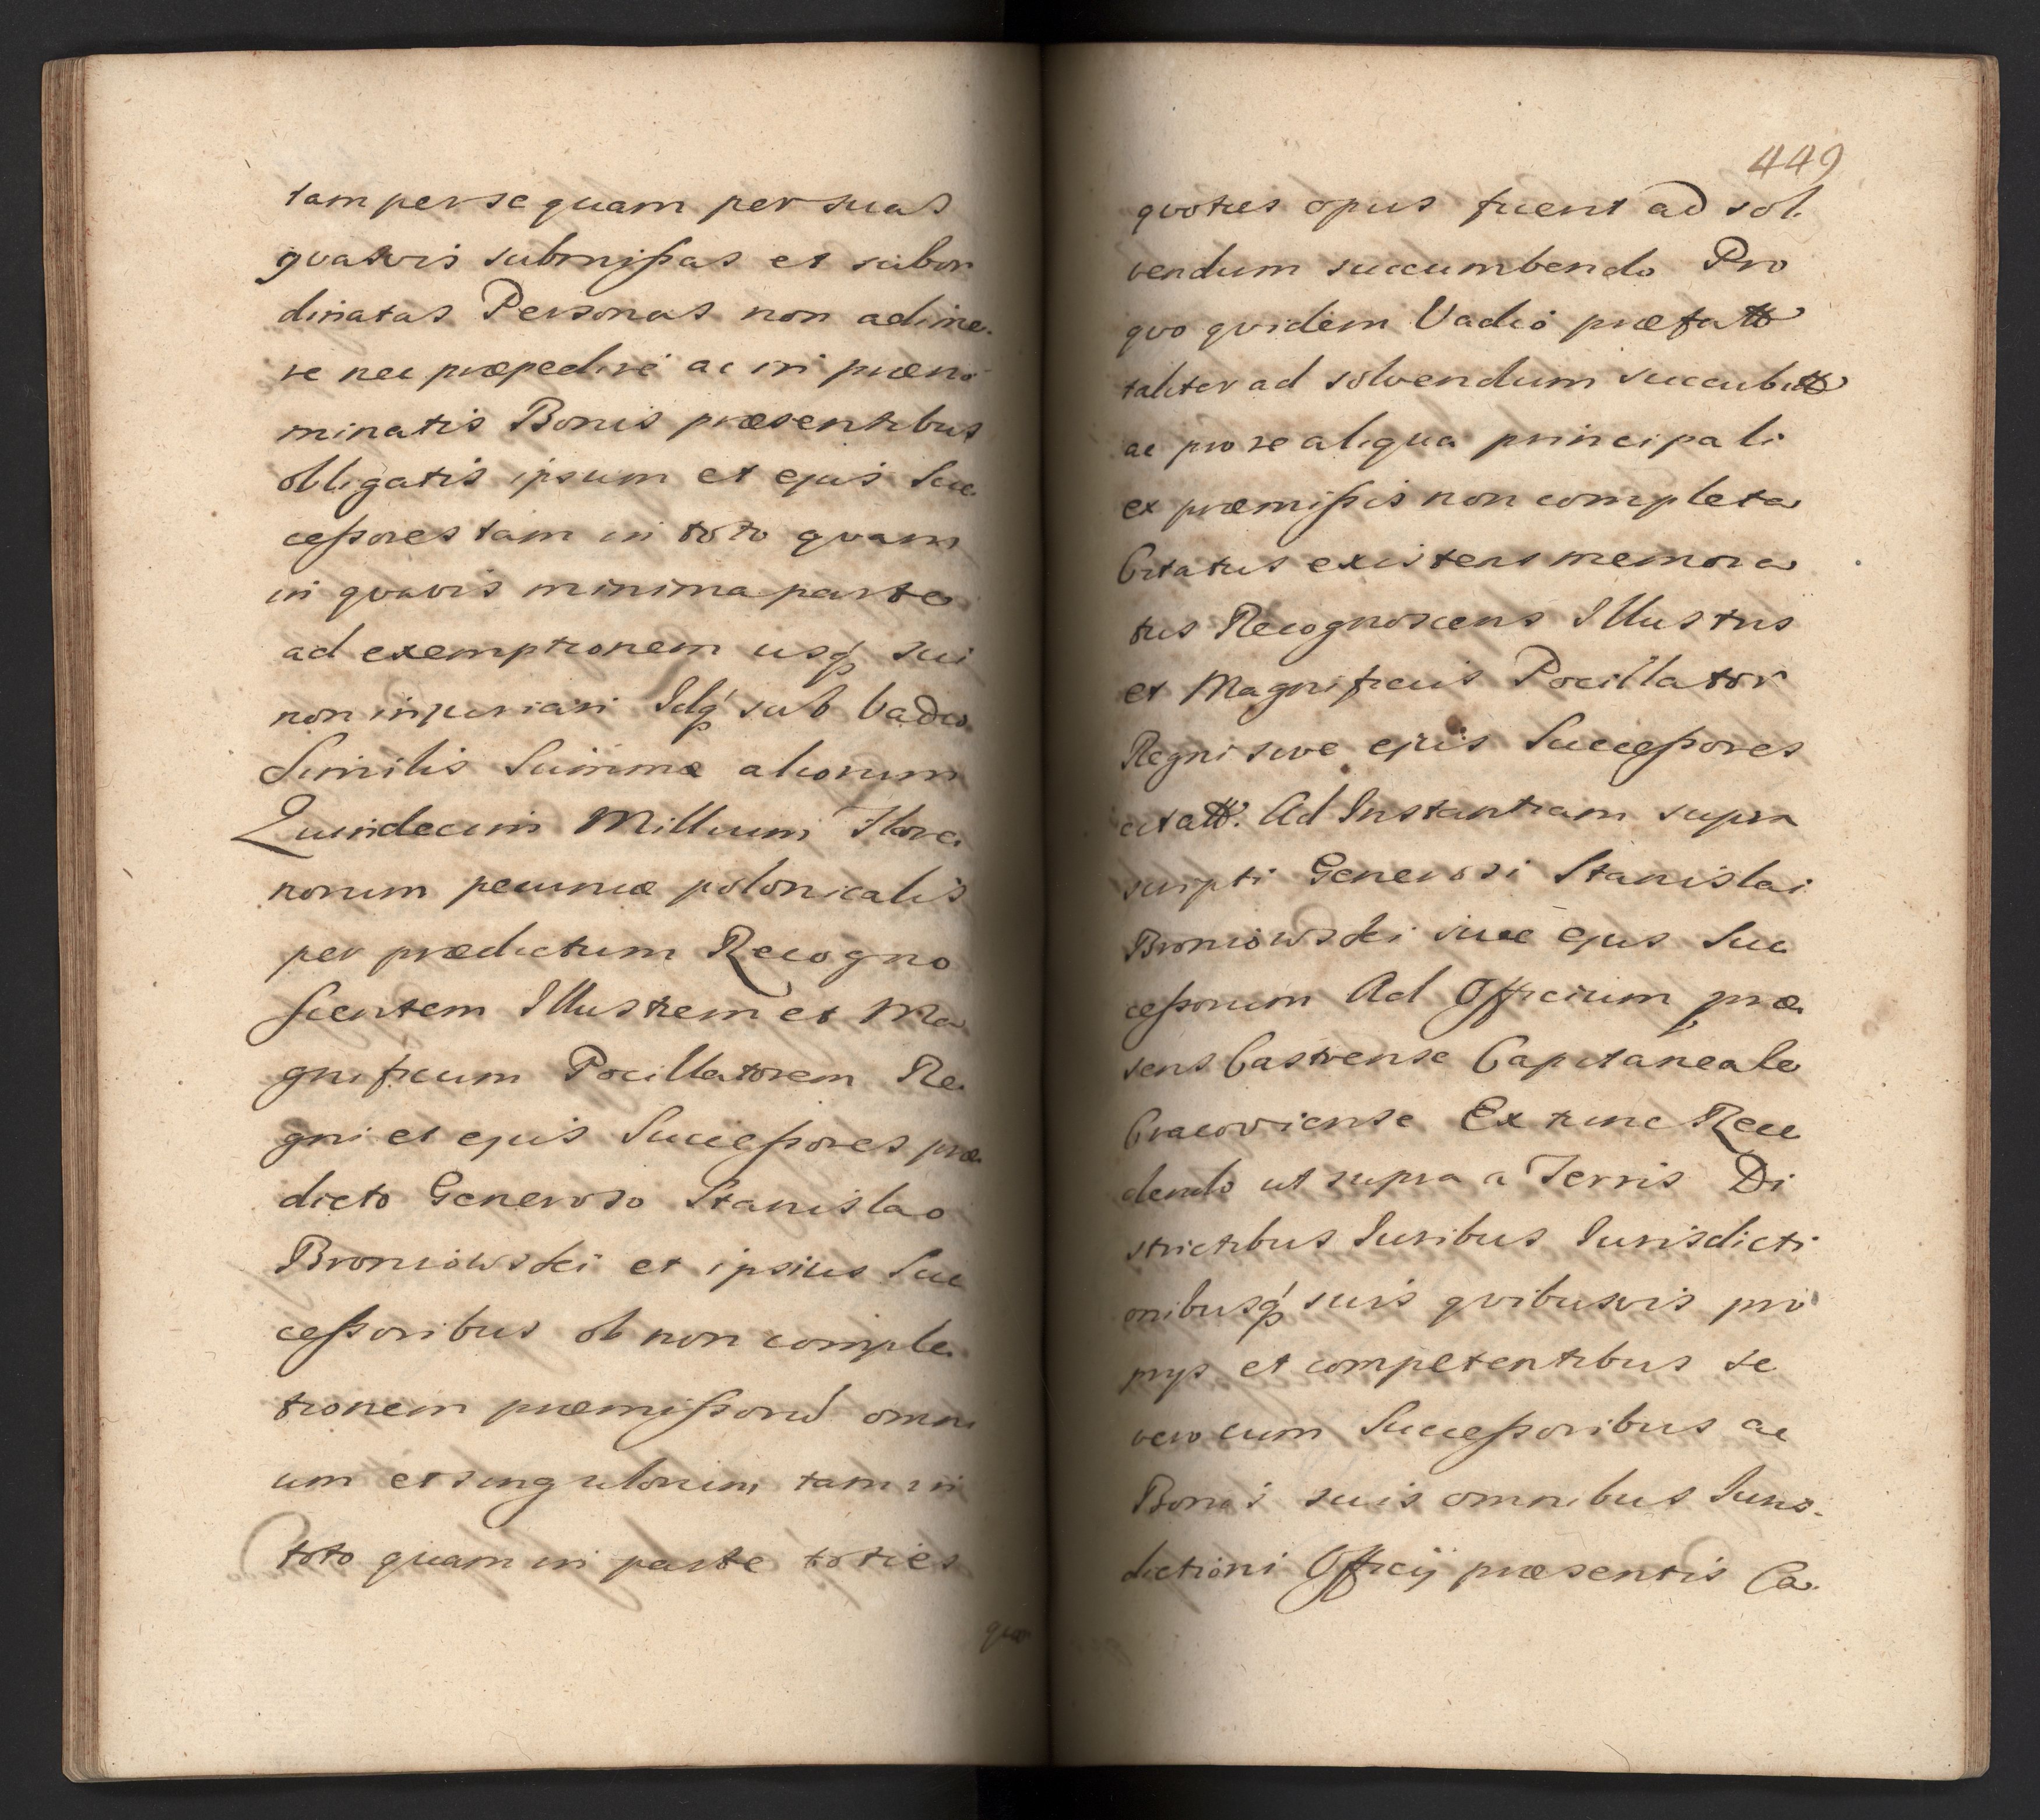 tam per se quam per suas
quasvis submißas et subor
dinatas Personas non adime-
re nec præpedire ac in præno
minatis Bonis præsentibus
obligatis ipsum et ejus Suc
ceßores tam in toto quam
in quavis minima parte
ad exemptionem usq sui
non injuriari Idq sub Vadio
Similis Summæ aliorum
Quindecim Millium Flore.
norum pecuniæ polonicalis
per prædictum Recogno
scentem Illustrem et Ma
gnificum Pocillatorem Re.
gni et ejus Succeßores præ.
dicto Generoso Stanislao
Broniowski et ipsius Suc
ceßoribus ob non comple.
tionem præmißorū omni
um et singulorum tam in
toto quam in parte toties
quo
449
quoties opus fuerit ad sol.
vendum succumbendo Pro
quo quidem Vadio præfatt
taliter ad solvendum succubitt
ac pro re aliqua principali
ex præmißis non completa
Citatus existens memora
tus Recognoscens Illustris
et Magnificus Pocillator
Regni sive ejus Succeßores
citatt. Ad Instantiam supra
scripti Generosi Stanislai
Broniowski sive ejus Suc
ceßorum Ad Officium præ.
sens Castrense Capitaneale
Cracoviense Ex tunc Rece
dendo ut supra a Terris Di
strictibus Iuribus Iurisdicti
onibusq suis quibusvis pro
prys et competentibus se
vero cum Succeßoribus ac
Bonis suis omnibus Iuris.
dictioni Officij præsentis Ca.